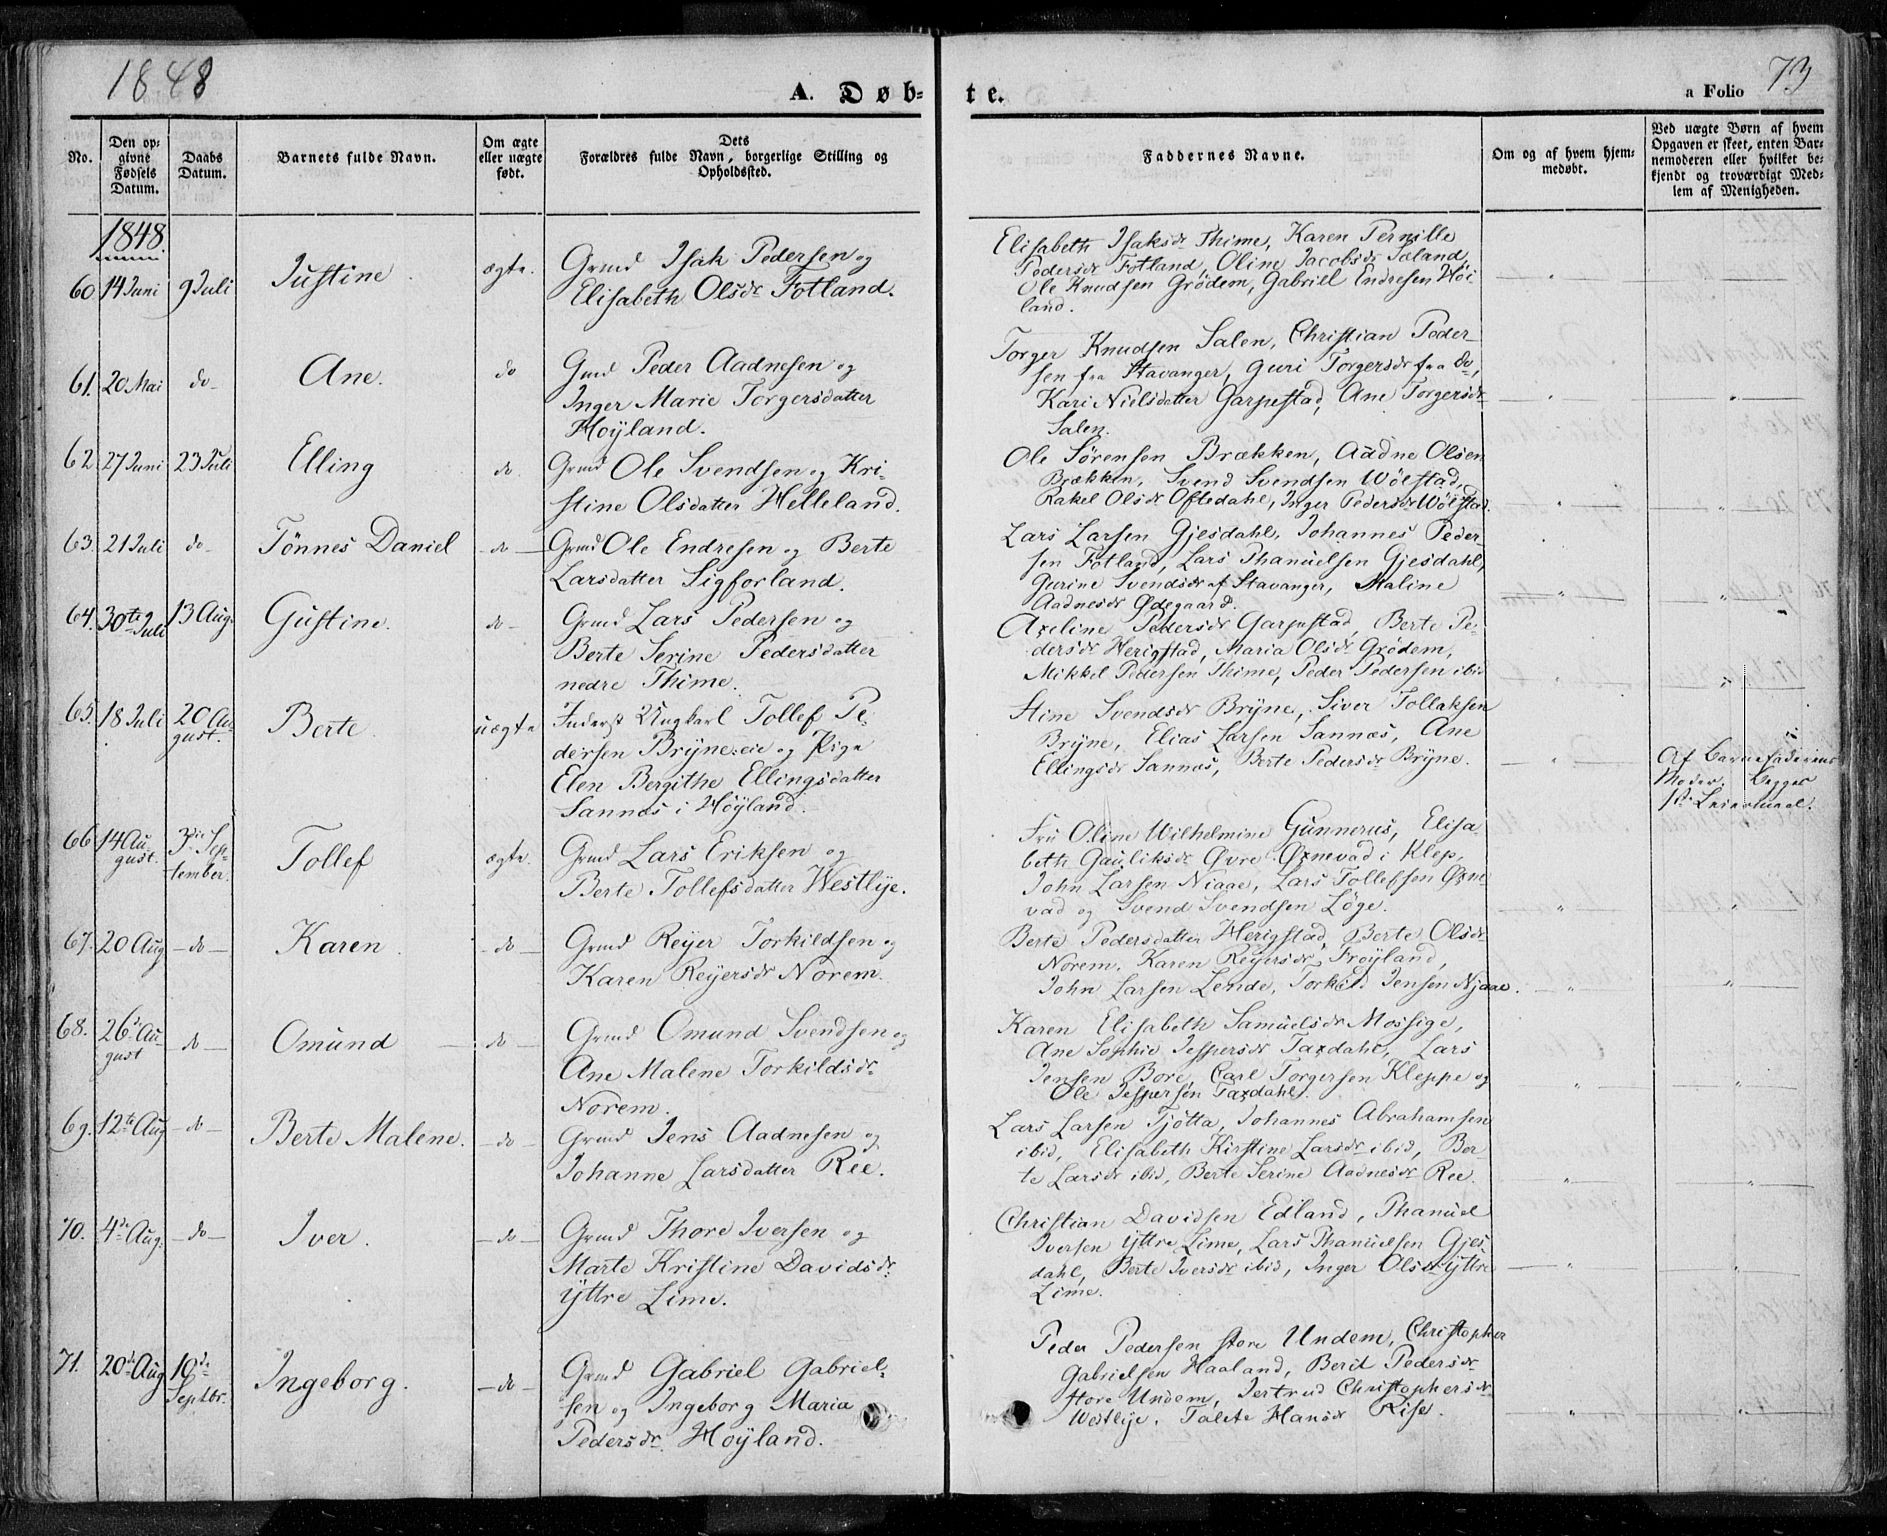 1848
A. Døb-
te.
a Folio 73
No.
Den op-
givne
Fødsels
Datum.
Daabs
Datum.
Barnets fulde Navn.
Om ægte
eller uægte
født.
Dets
Forældres fulde Navn, borgerlige Stilling og
Opholdssted.
Faddernes Navne.
Om og af hvem hjem-
medøbt.
Ved uægte Børn af hvem
Opgaven er skeet, enten Bar-
nemoderen eller hvilket be-
kjendt og troværdigt Med-
lem af Menigheden.
1848.
60 14 Juni 9 Juli Justine. ægte. Grmd Isak Pedersen og
Elisabeth Olsdr Fotland.
Elisabeth Isaksdr Thime, Karen Pernille
Pedersdr Fotland, Oline Jacobsdr Sæland,
Ole Knudsen Grödem, Gabriel Endresen Höi-
land.
61. 20 Mai do Ane. do Gmd Peder Aadnesen og
Inger Marie Torgersdatter
Hoÿland.
Torger Knudsen Salen, Christian Peder-
sen fra Stavanger, Guri Torgersdr fra do,
Kari Nielsdatter Garpestad, Ane Torgersdr
Salen.
62 27 Juni 23 Juli Elling do Grmd Ole Svendsen og Kri-
stine Olsdatter Helleland.
Ole Sörensen Brækken, Aadne Olsen
Brækken, Svend Svendsen Wölstad,
Rakel Olsdr Oftedahl, Inger Pedersdr Wölstad
63. 21 Juli do Tönnes Daniel do Grmd Ole Endresen og Berte
Larsdatter Sigforland.
Lars Larsen Gjesdahl, Johannes Peder-
sen Fotland, Lars Thanuelsen Gjesdahl,
Gurine Svendsdr af Stavanger, Maline
Aadnesdr Ødegaard.
64. 30te Juli 13 Aug. Gustine. do Grmd Lars Pedersen og
Berte Serine Pedersdatter
nedre Thime.
Axeline Pedersdr Garpestad, Berte Pe-
dersdr Herigstad, Maria Olsdr Grödem,
Mikkel Pedersen Thime, Peder Pedersen ibid
65. 18 Juli 20 Au-
gust. Berte. uægte Inderst Ungkarl Tollef Pe-
dersen Brÿne:eie og Pige
Elen Bergithe Ellingsdatter
Sannæs i Höÿland.
Stine Svendsdr Brÿne, Siver Tollaksen
Brÿne, Elias Larsen Sannæs, Ane
Ellingsdr Sannæs, Berte Pedersdr Brÿne.
Af Barnefaderens
Moder. Begges
1ste Leiermaal.
66 14 Au-
gust. 3die Sep-
tember. Tollef ægte. Grmd Lars Eriksen og
Berte Tollefsdatter Westlÿe.
Fru Oline Wilhelmine Gunnerus, Elisa-
beth Gauliksdr Øvre Øxnevad i Klep,
John Larsen Niaae, Lars Tollefsen Øxne-
vad og Svend Svendsen Löge.
67. 20 Aug do Karen. do Grmd Reÿer Torkildsen og
Karen Reÿersdr Norem.
Berte Pedersdatter Herigstad, Berte Olsdr
Norem. Karen Reÿersdr Fröÿland,
John Larsen Lende, Torkild Jensen Njaae.
68. 26de Au-
gust do Omund do Grmd Omund Svendsen og
Ane Malene Torkildsdr
Norem.
Karen Elisabeth Samuelsdr Mossige,
Ane Sophie Jespersdr Taxdahl, Lars
Jensen Bore, Carl Torgersen Kleppe og
Ole Jespersen Taxdahl.
69. 12te Aug do Berte Malene. do Grmd Jens Aadnesen og
Johanne Larsdatter Ree.
Lars Larsen Tjötta, Johannes Abrahamsen
ibid, Elisabeth Kirstine Larsdr ibid, Ber
te Larsdr ibid, Berte Serine Aadnesdr Ree.
70. 4de Aug. do Iver. do Grmd Thore Iversen og
Marte Kristine Davidsdr
ÿttre Lime.
Christian Davidsen Edland, Thanuel
Iversen ÿttre Lime, Lars Thanuelsen Gjes-
dahl, Berte Iversdr ibid, Inger Olsdr ÿttre
Lime.
71. 20de Aug 10de
Septbr. Ingeborg. do Grmd Gabriel Gabriel-
sen og Ingeborg Maria
Pedersdr Hoÿland.
Peder Pedersen store Undem, Christopher
Gabrielsen Haaland, Berit Pedersdr
store Undem, Jertrud Christophersdr
Westlÿe. Talete Hansdr Rise.